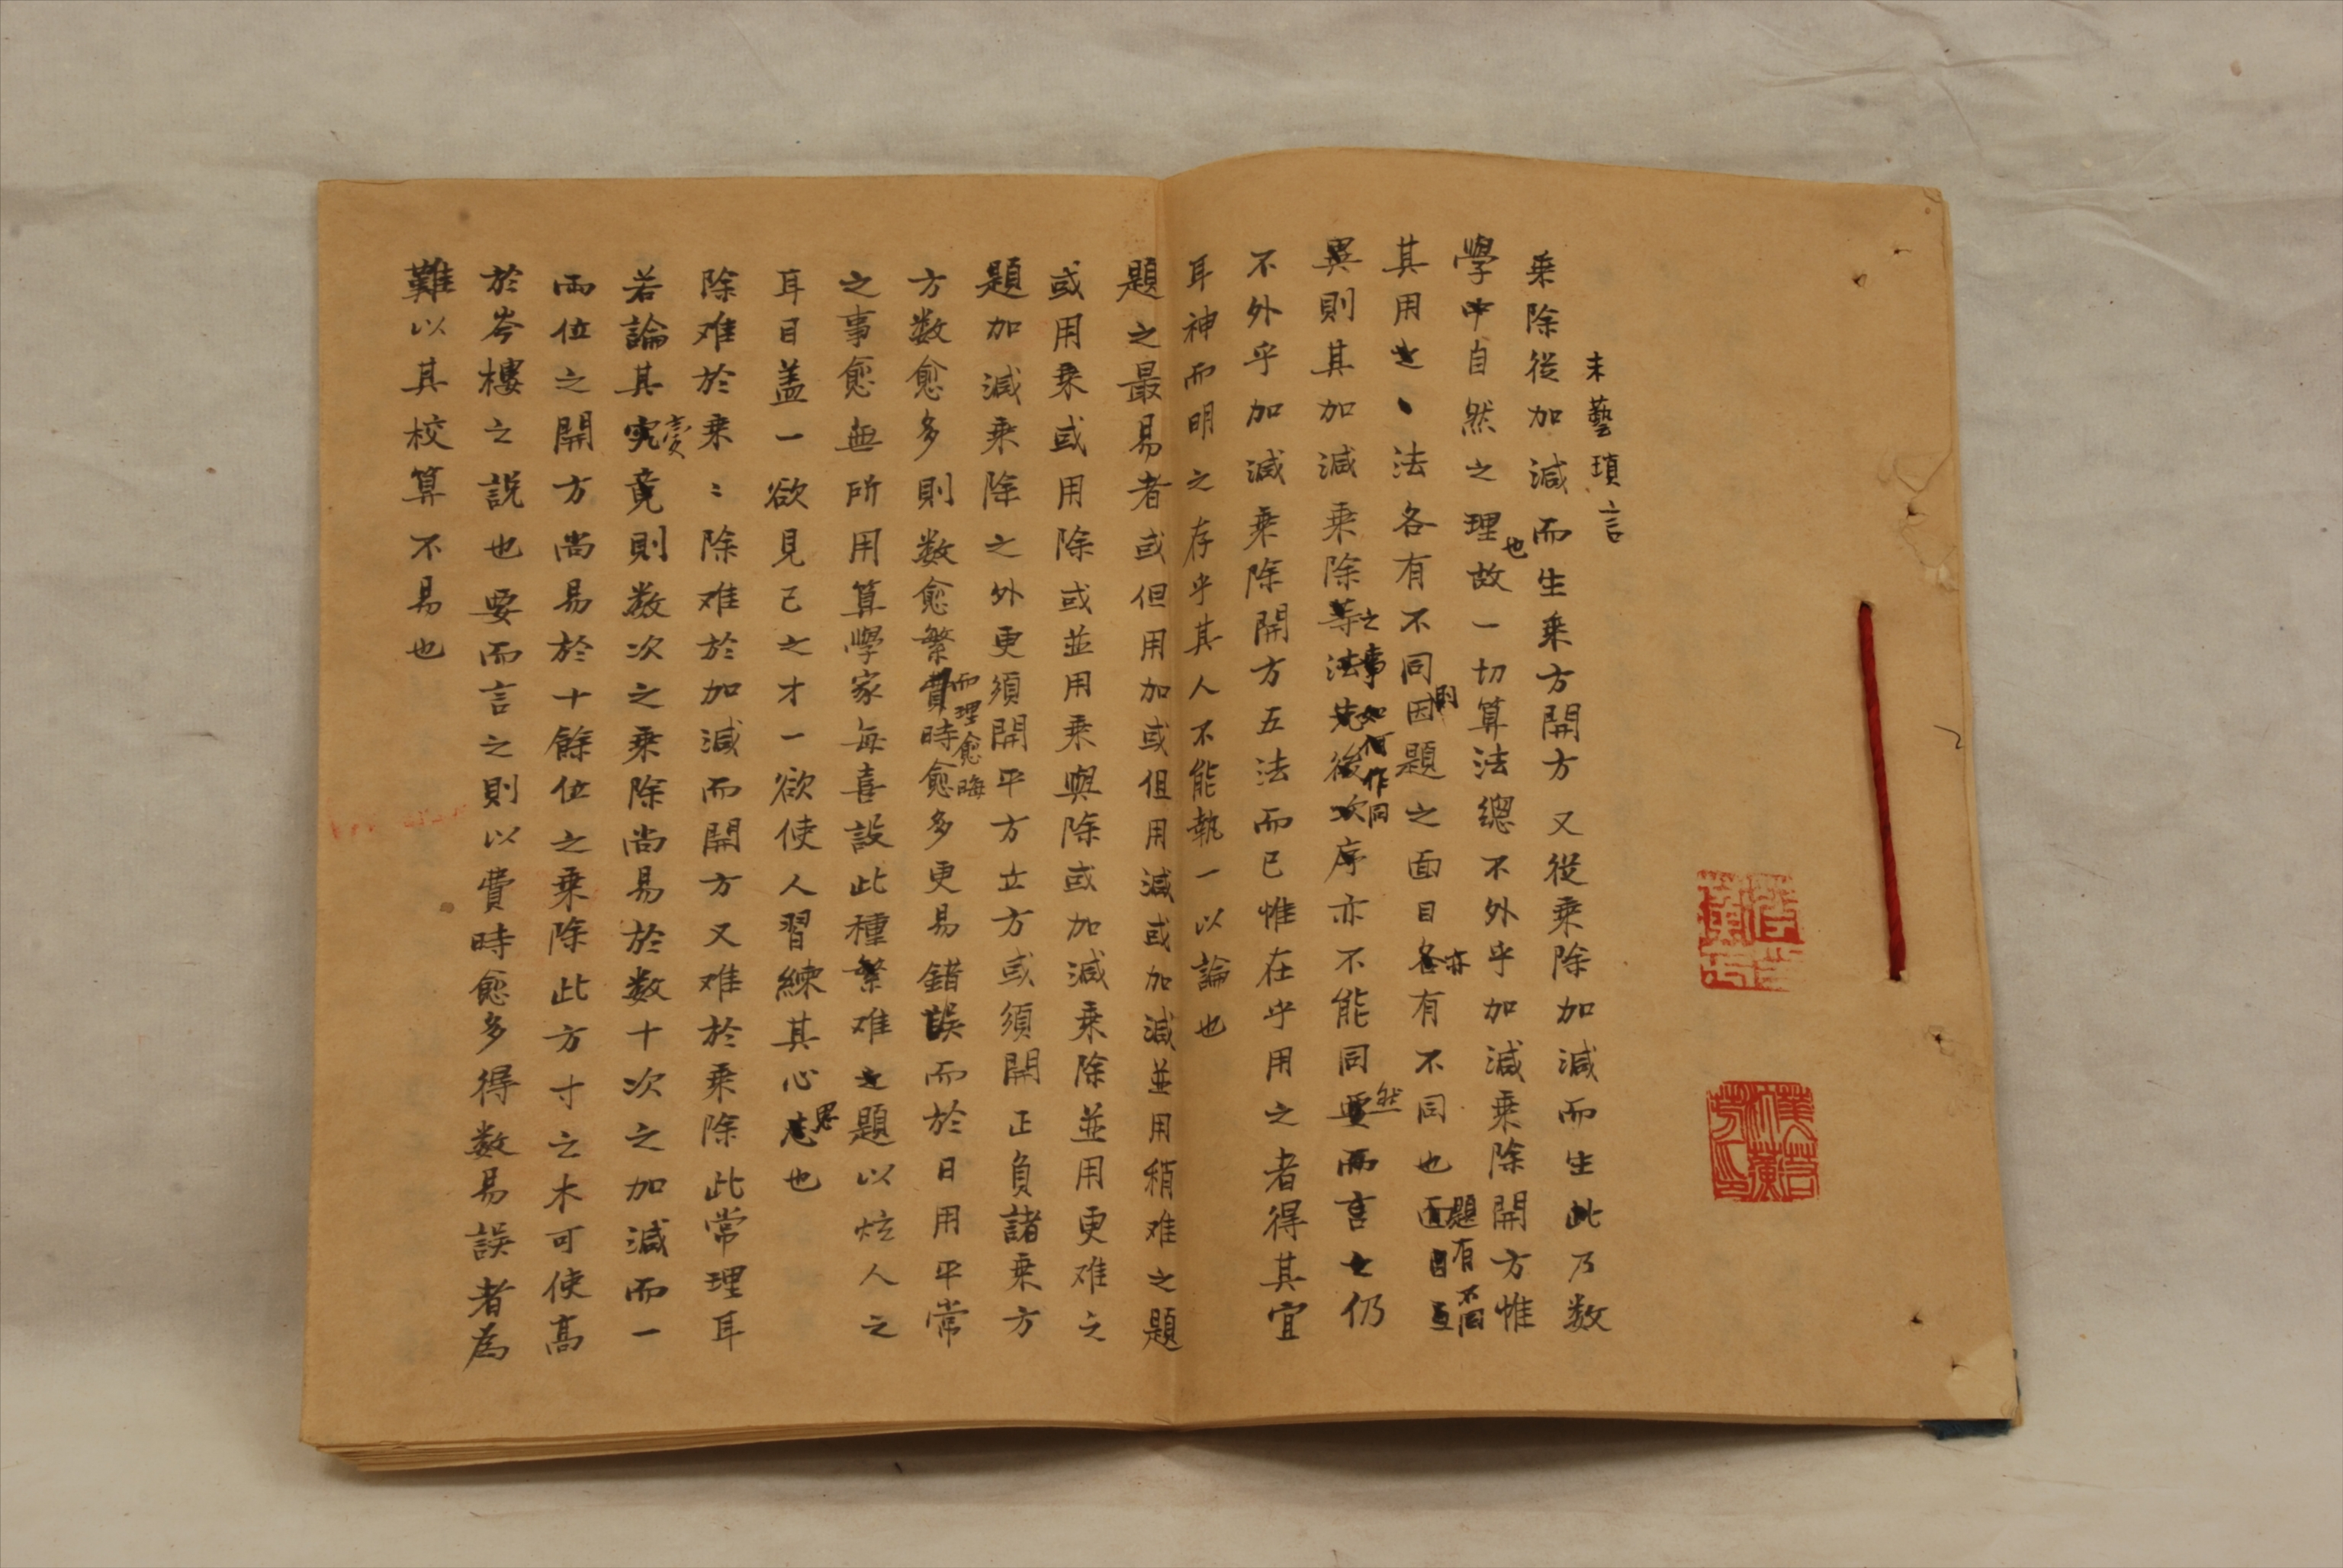 末藝瑣言
乘除從加減而生乘方開方又從乘除加減而生此乃数
學中自然之理也故一切算法總不外乎加減乘除開方惟
其用之之法各有不同則因題之面目各亦有不同也面目題有不同
異則其加減乘除等法之事如何作同先後次序亦不能同要然而言之仍
不外乎加減乘除開方五法而已惟在乎用之者得其宜
耳神而明之存乎其人不能執一以論也
題之最易者或但用加或但用減或加減並用稍难之題
或用乘或用除或並用乘與除或加減乘除並用更难之
題加減乘除之外更須開平方立方或須開正負諸乘方
方数愈多則数愈繁而理愈晦費時愈多更易錯誤而於日用平常
之事愈無所用算學家每喜設此種繁难之題以炫人之
耳目盖一欲見己之才一欲使人習練其心志思也
除难於乘〻除难於加減而開方又难於乘除此常理耳
若論其究竟變則数次之乘除尚易於数十次之加減而一
兩位之開方尚易於十餘位之乘除此方寸之木可使高
於岑樓之説也要而言之則以費時愈多得数易誤者為
難以其校算不易也